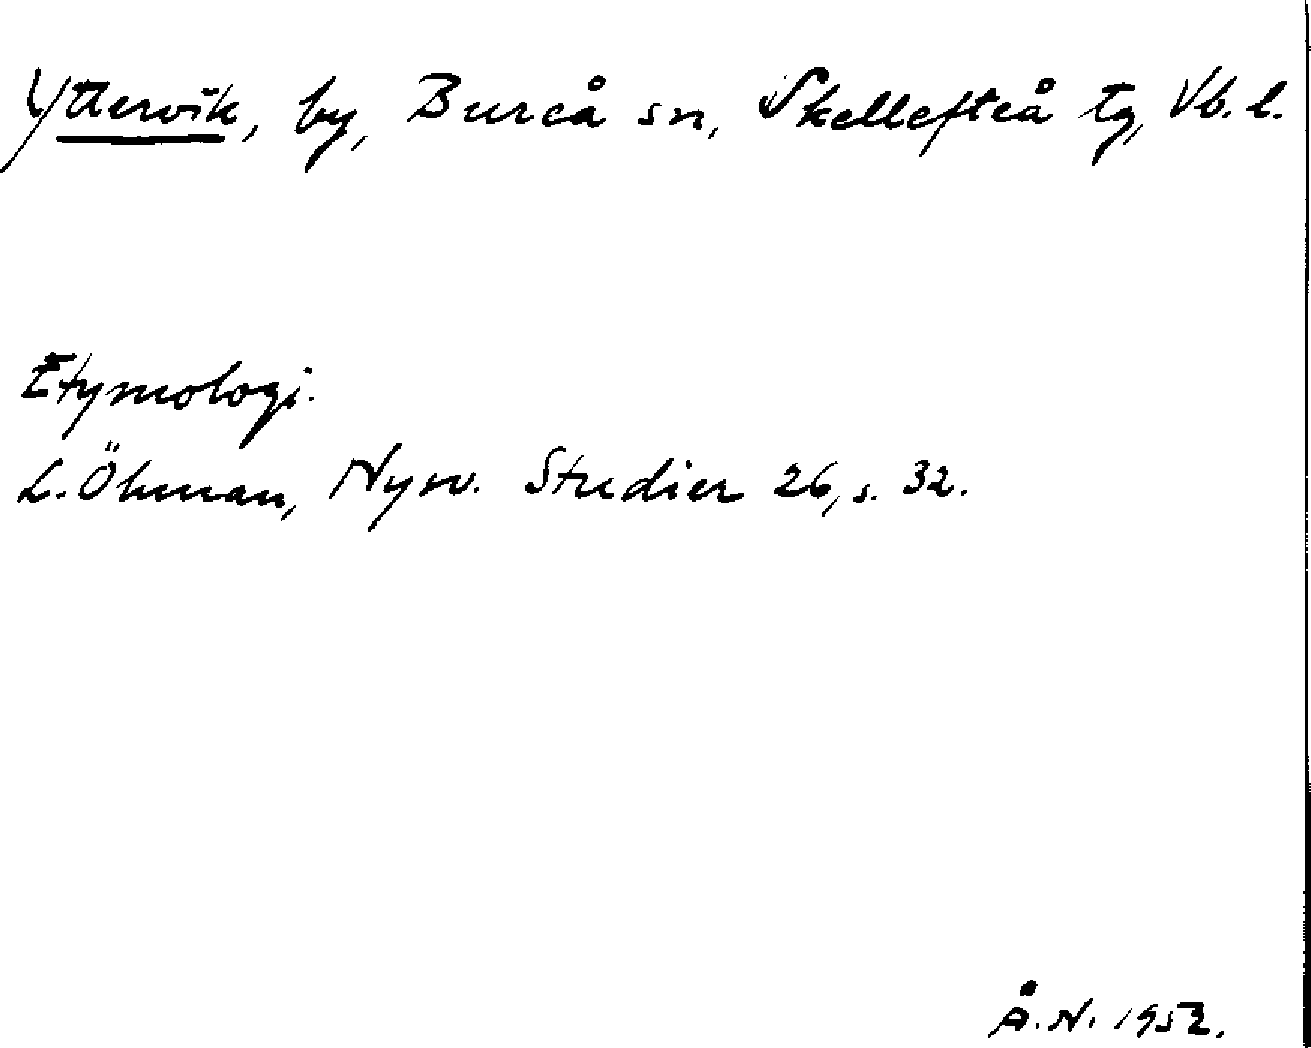 Yttervik, by, Bureå sn, Skellefteå tg, Vb. l.
Etymologi.
L. Öhman, Nysv. Studier 26, s. 32.
Å. N. 1952.